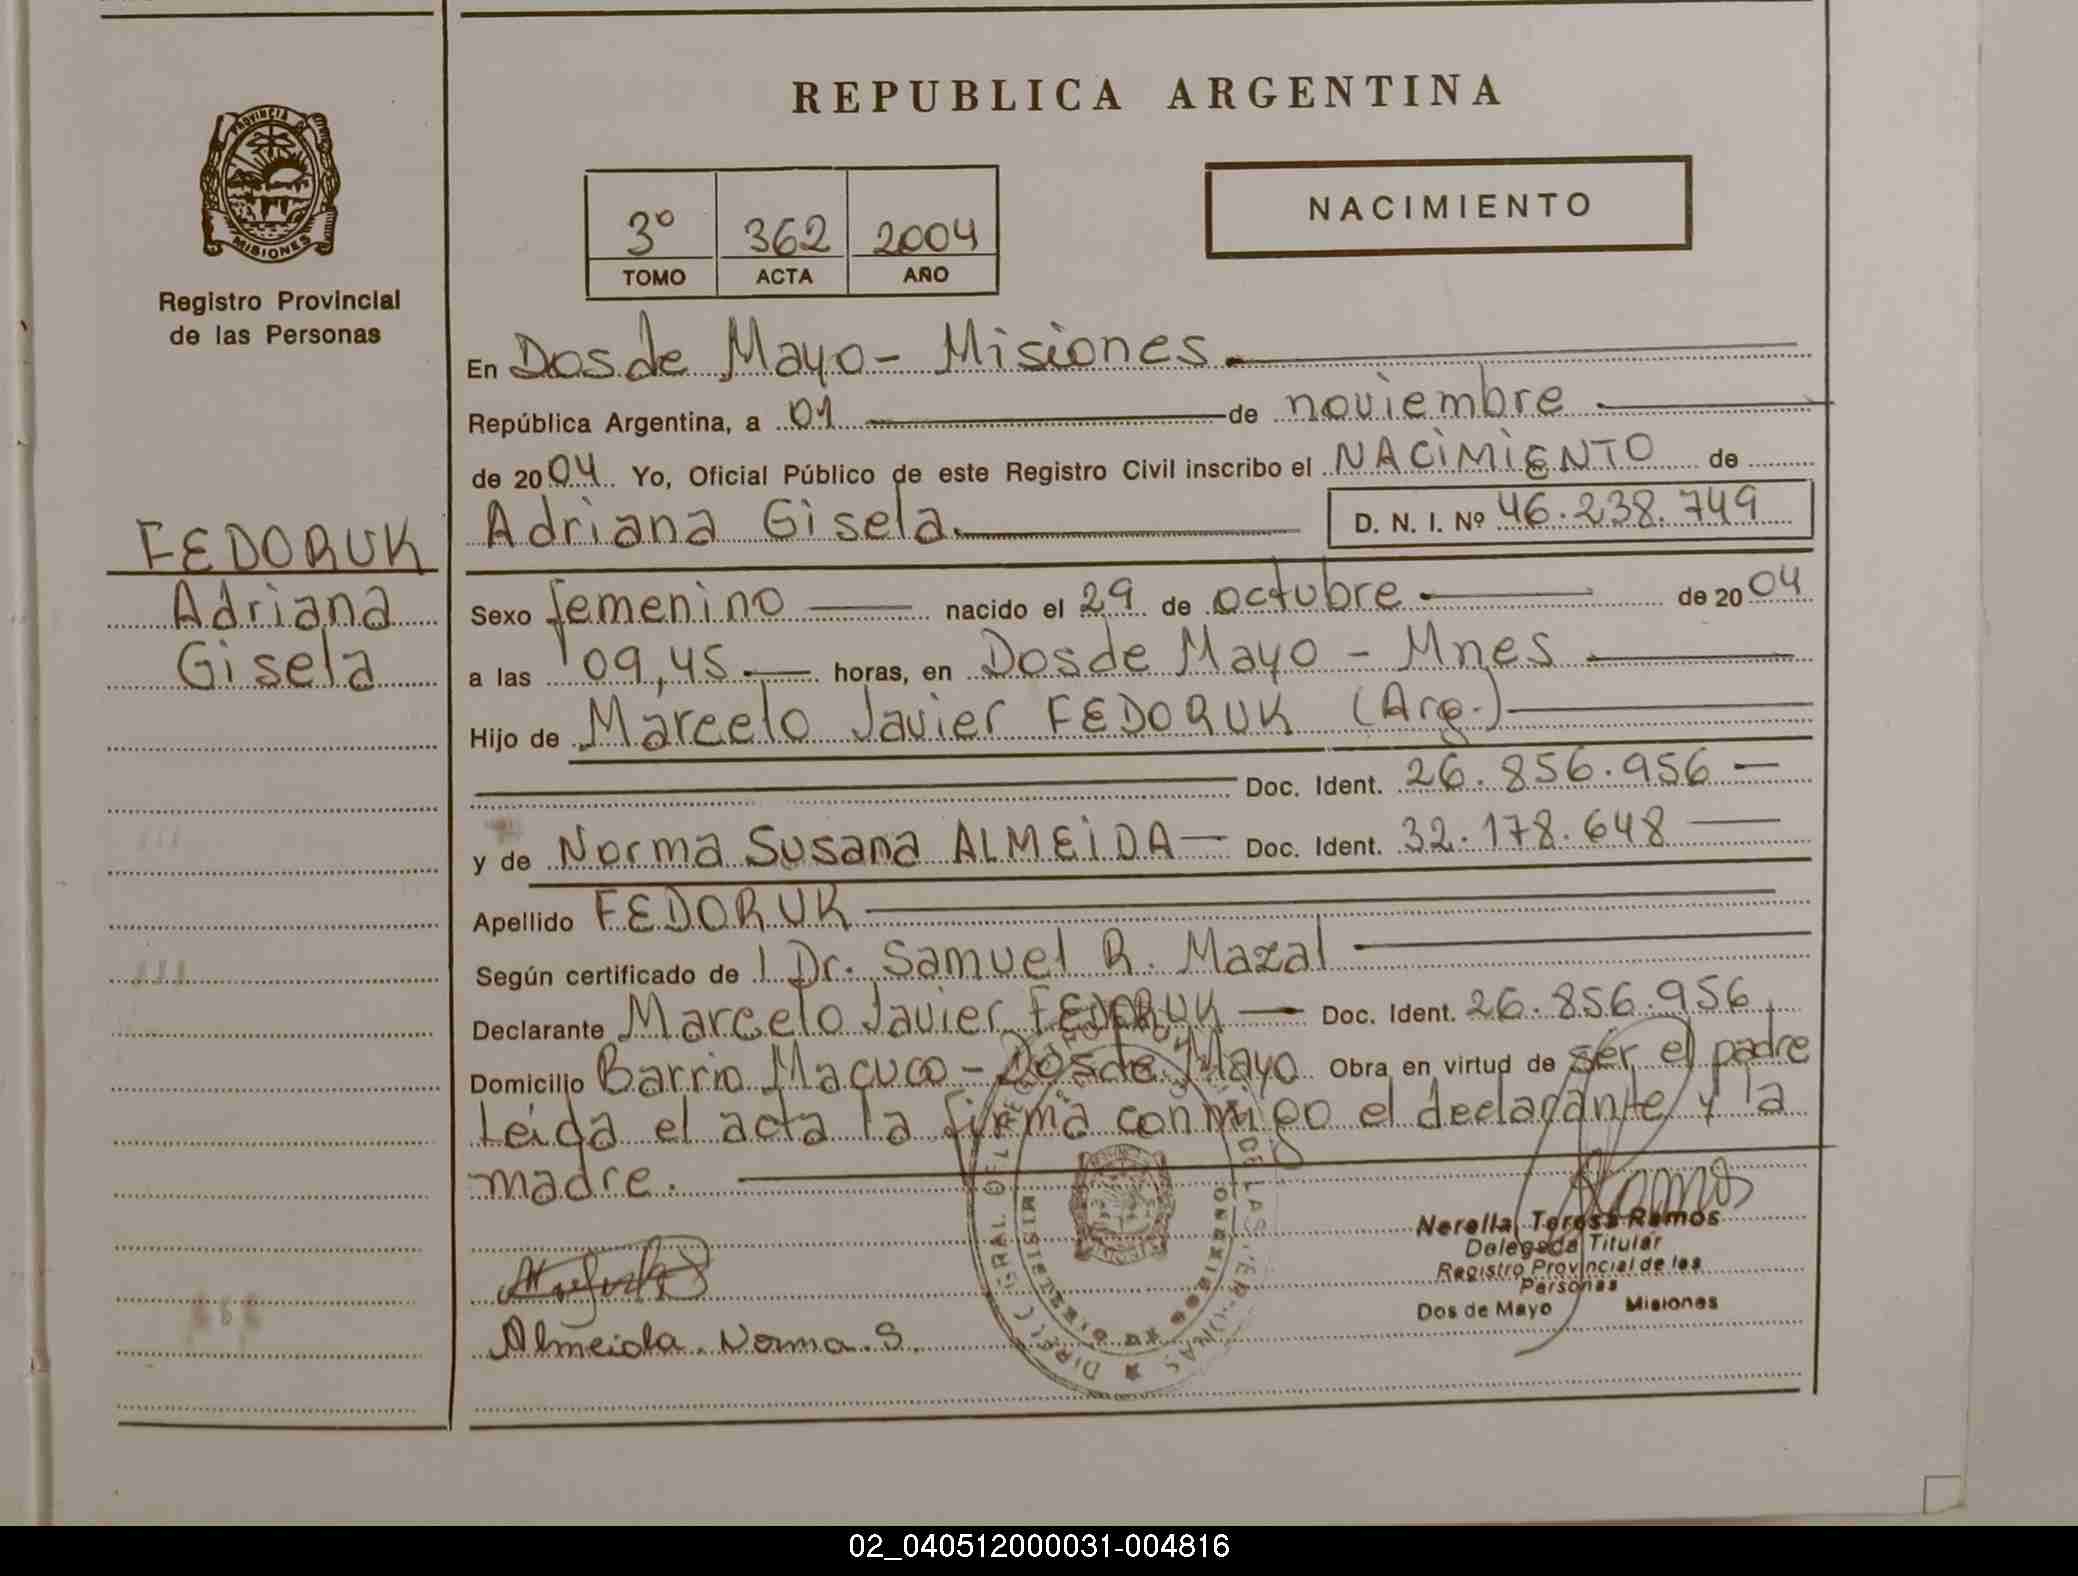 REPUBLICA ARGENTINA
PROVINCIA DE
MISIONES
Registro Provincial
de las Personas
NACIMIENTO
3º 362 2004
TOMO ACTA AÑO
En Dos de Mayo - Misiones.
República Argentina, a 01 de noviembre
de 2004 Yo, Oficial Público de este Registro Civil inscribo el NACIMIENTO de
Adriana Gisela. D. N. I. Nº 46.238.749
FEDORUK
Adriana
Gisela
Sexo femenino nacido el 29 de octubre de 2004
a las 09,45 horas, en Dos de Mayo - Mnes
Hijo de Marcelo Javier FEDORUK (Arg.)
Doc. Ident. 26.856.956
y de Norma Susana ALMEIDA Doc. Ident. 32.178.648
Apellido FEDORUK
Según certificado de Dr. Samuel R. Mazal
Declarante Marcelo Javier FEDORUK Doc. Ident. 26.856.956
Domicilio Barrio Macuco - Dos de Mayo Obra en virtud de ser el padre
Leída el acta la firma conmigo el declarante y la
madre.
Ramos
Nerella Teresa Ramos
Delegada Titular
Registro Provincial de las
Personas
Dos de Mayo Misiones
Almeida Norma S.
02_040512000031-004816